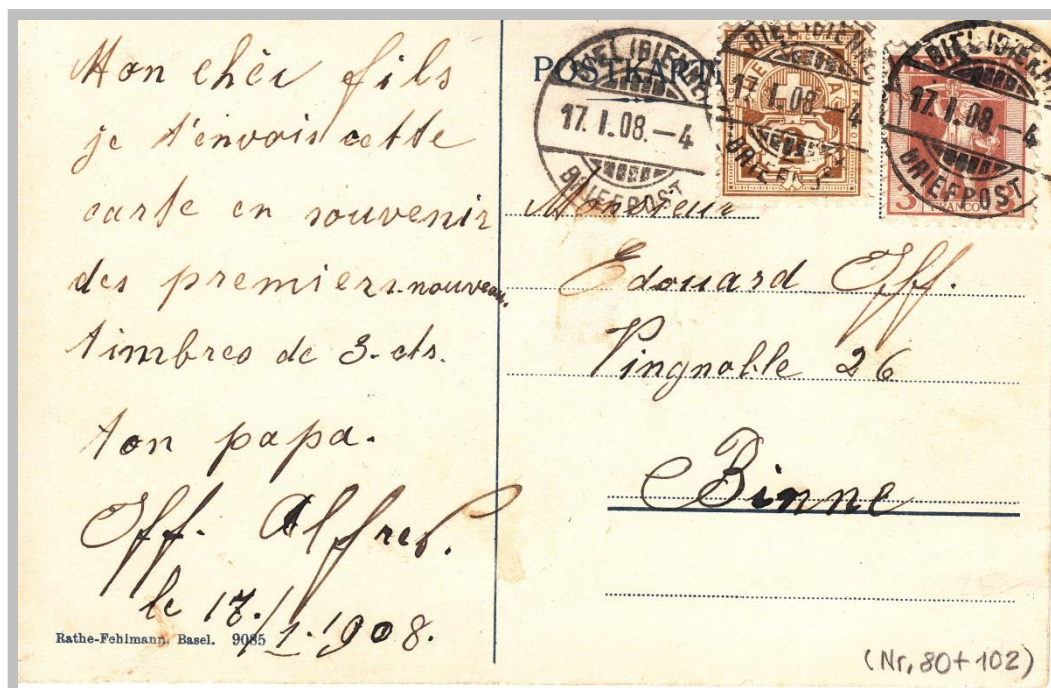 Mon chèr fils
je t'envois cette
carte en souvenir
des premiers nouveau.
timbres de 3. cts.
ton papa.
Iff. Alfred.
le 17./1.1908.
Rathe-Fehlmann, Basel. 9085
POSTKARTE
BIEL (BIENNE)
17. I. 08. – 4
BRIEFPOST
2
BIEL (BIENNE)
17. I. 08. – 4
BRIEFPOST
3 FRANCO 3
BIEL (BIENNE)
17. I. 08. – 4
BRIEFPOST
Monsieur
Edouard Iff.
Vingnoble 26
Binne
(Nr. 80 + 102)